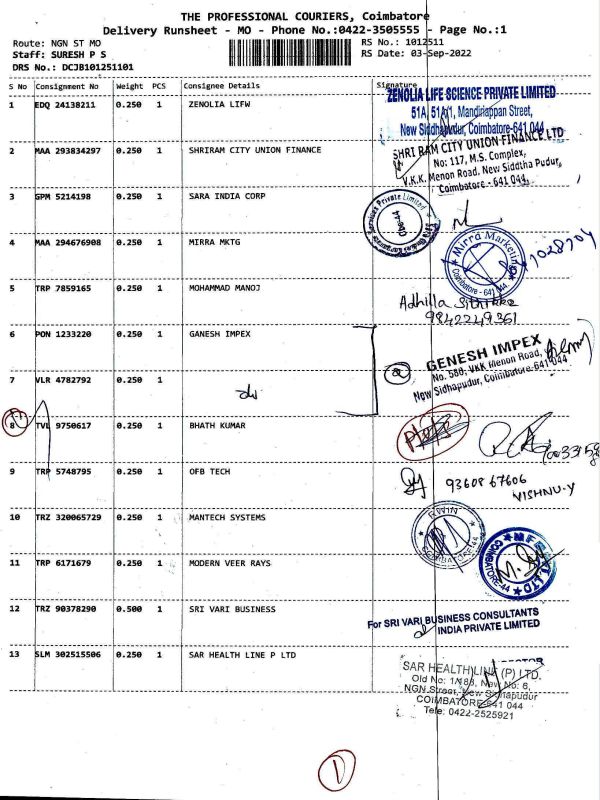 THE PROFESSIONAL COURIERS, Coimbatore
Delivery Runsheet - MO - Phone No.:0422-3505555 - Page No.:1
Route: NGN ST MO
Staff: SURESH P S
DRS No.: DCJB101251101
RS No.: 1012511
RS Date: 03-Sep-2022
S No Consignment No Weight PCS Consignee Details Signature
1 EDQ 24138211 0.250 1 ZENOLIA LIFW
ZENOLIA LIFE SCIENCE PRIVATE LIMITED
51A, 51A/1, Mandiriappan Street,
New Siddhapudur, Coimbatore-641 044
2 MAA 293834297 0.250 1 SHRIRAM CITY UNION FINANCE
SHRI RAM CITY UNION FINANCE LTD
No: 117, M.S. Complex,
V.K.K. Menon Road, New Siddtha Pudur,
Coimbatore - 641 044.
3 GPM 5214198 0.250 1 SARA INDIA CORP
Services Private Limited
4 MAA 294676908 0.250 1 MIRRA MKTG
Mirra Marketing
Coimbatore - 641 044
5 TRP 7859165 0.250 1 MOHAMMAD MANOJ
Adhilla Sithikka
9842249361
6 PON 1233220 0.250 1 GANESH IMPEX
GENESH IMPEX
No. 580, VKK Menon Road,
New Sidhapudur, Coimbatore-641 044
7 VLR 4782792 0.250 1
do
8 TVL 9750617 0.250 1 BHATH KUMAR
9 TRP 5748795 0.250 1 OFB TECH
93608 67606
VISHNU-Y
10 TRZ 320065729 0.250 1 MANTECH SYSTEMS
COIMBATORE-44
11 TRP 6171679 0.250 1 MODERN VEER RAYS
COIMBATORE-44
12 TRZ 90378290 0.500 1 SRI VARI BUSINESS
For SRI VARI BUSINESS CONSULTANTS
INDIA PRIVATE LIMITED
13 SLM 302515506 0.250 1 SAR HEALTH LINE P LTD
SAR HEALTH LINE (P) LTD.
Old No: 1/188, New No: 6,
NGN Street, New Sidhapudur
COIMBATORE-641 044
Tele: 0422-2525921
1